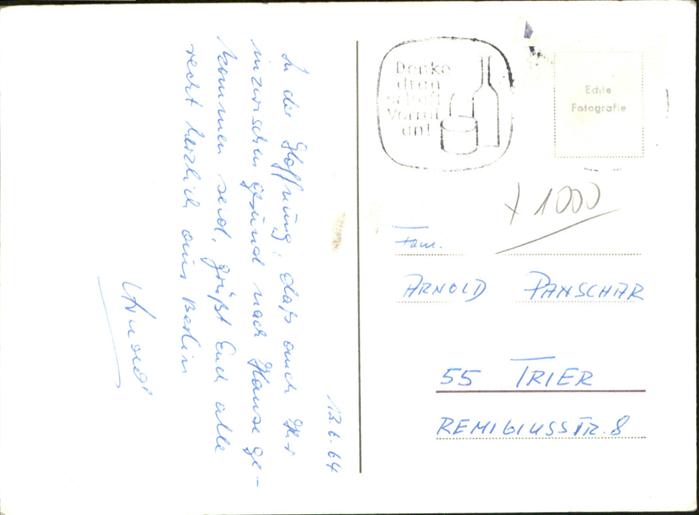 13.6.64
In der Hoffnung, daß auch Ihr
inzwischen gesund nach Hause ge-
kommen seid, grüßt Euch alle
recht herzlich aus Berlin
Denke
dran
schaff
Vorrat
an!
Echte
Fotografie
+ 1000
Fam.
ARNOLD PANSCHAR
55 TRIER
REMIGIUSSTR. 8